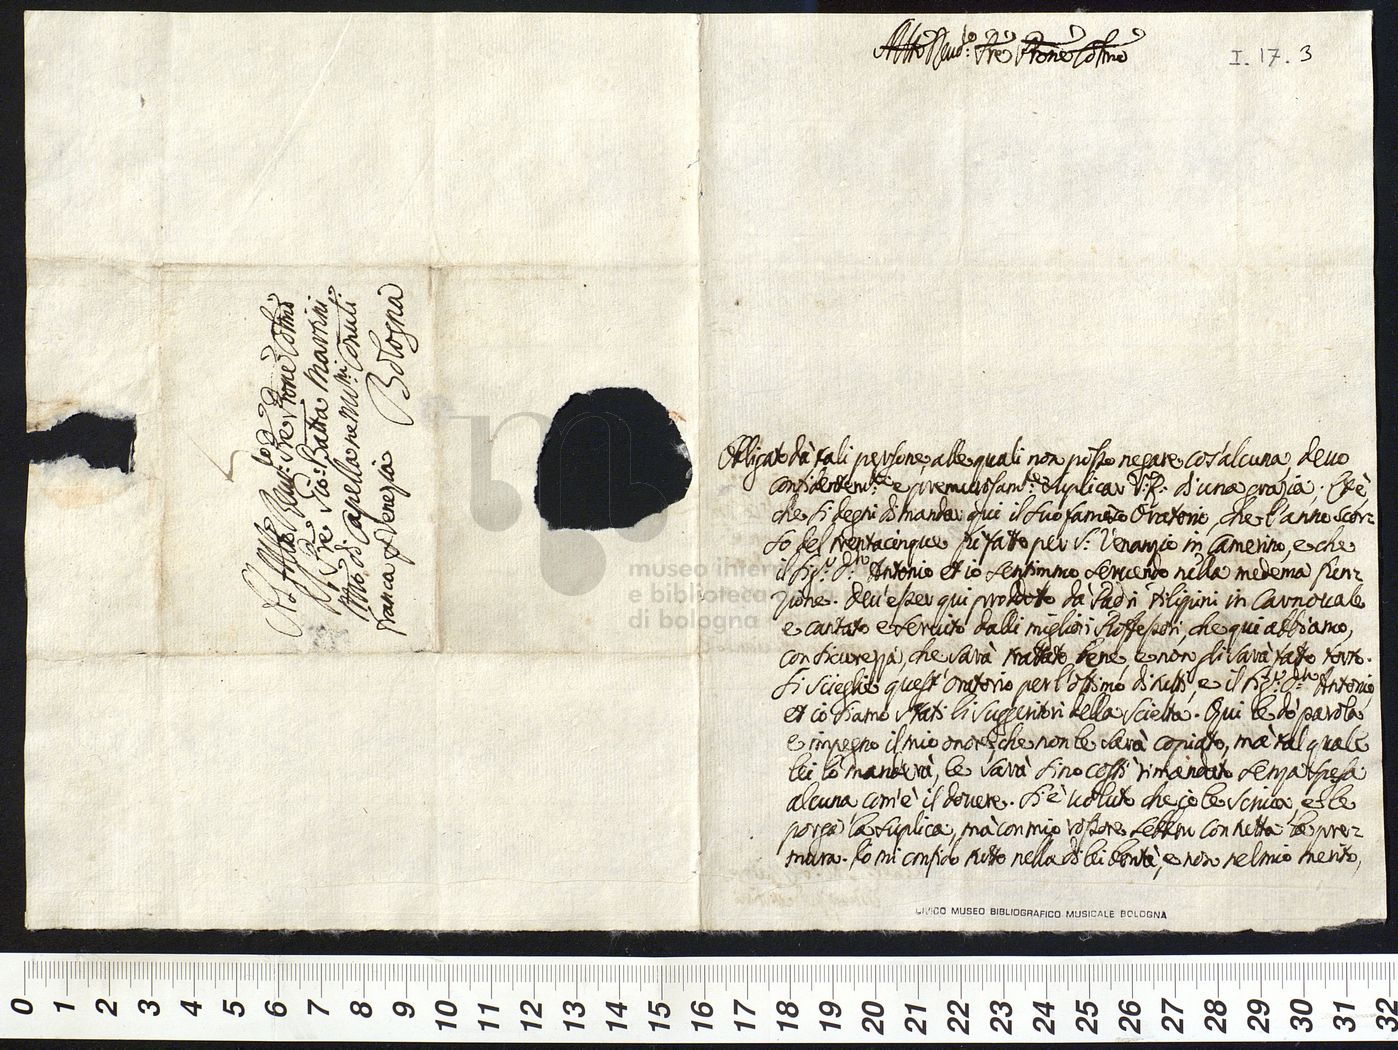 Al Molto Reud:o Pre Prone Colmo
Il Pre Gio: Batta Martini
Mro. di Capella ne Mi:ri Conuli:
franca p Venezia Bologna
Molto Reud:o Pre Prone Colmo
I. 17. 3
Obligato dà tali persone, alle quali non posso negare cos'alcuna, deuo
confidentem:te e premurosam:te suplicar V: P. d'una grazia. Et è,
che si degni di mandar qui il suo famoso Oratorio, che l'anno scor-
so del trentacinque fù fatto per S. Venanzio in Camerino, e che
il Sig:r D:n Antonio et io sentimmo seruendo nella medema fun-
zione. Deu'esser qui prodotto da Padri Filipini in Carnouale
e cantato e seruito dalli migliori Proffessori, che qui abbiamo,
con sicurezza, che sarà trattato bene, e non gli sarà fatto torto.
Si sceglie quest'Oratorio per l'ottimo di tutti, e il Sig:r D:n Antonio
et io siamo stati li suggeritori della scielta. Qui le dò parola
e impegno il mio onore, che non le sarà copiato, mà tal quale
lei lo manderà, le sarà sino costì rimandato senza spesa
alcuna com'è il douere. Si è uoluto che io le scriua, e le
porga la suplica, mà con mio rossore
con tutta la pre-
mura. Io mi confido tutto nella di lei bontà, e non nel mio merito,
museo inter
e biblioteca
di bologna
CIVICO MUSEO BIBLIOGRAFICO MUSICALE BOLOGNA
0 1 2 3 4 5 6 7 8 9 10 11 12 13 14 15 16 17 18 19 20 21 22 23 24 25 26 27 28 29 30 31 32